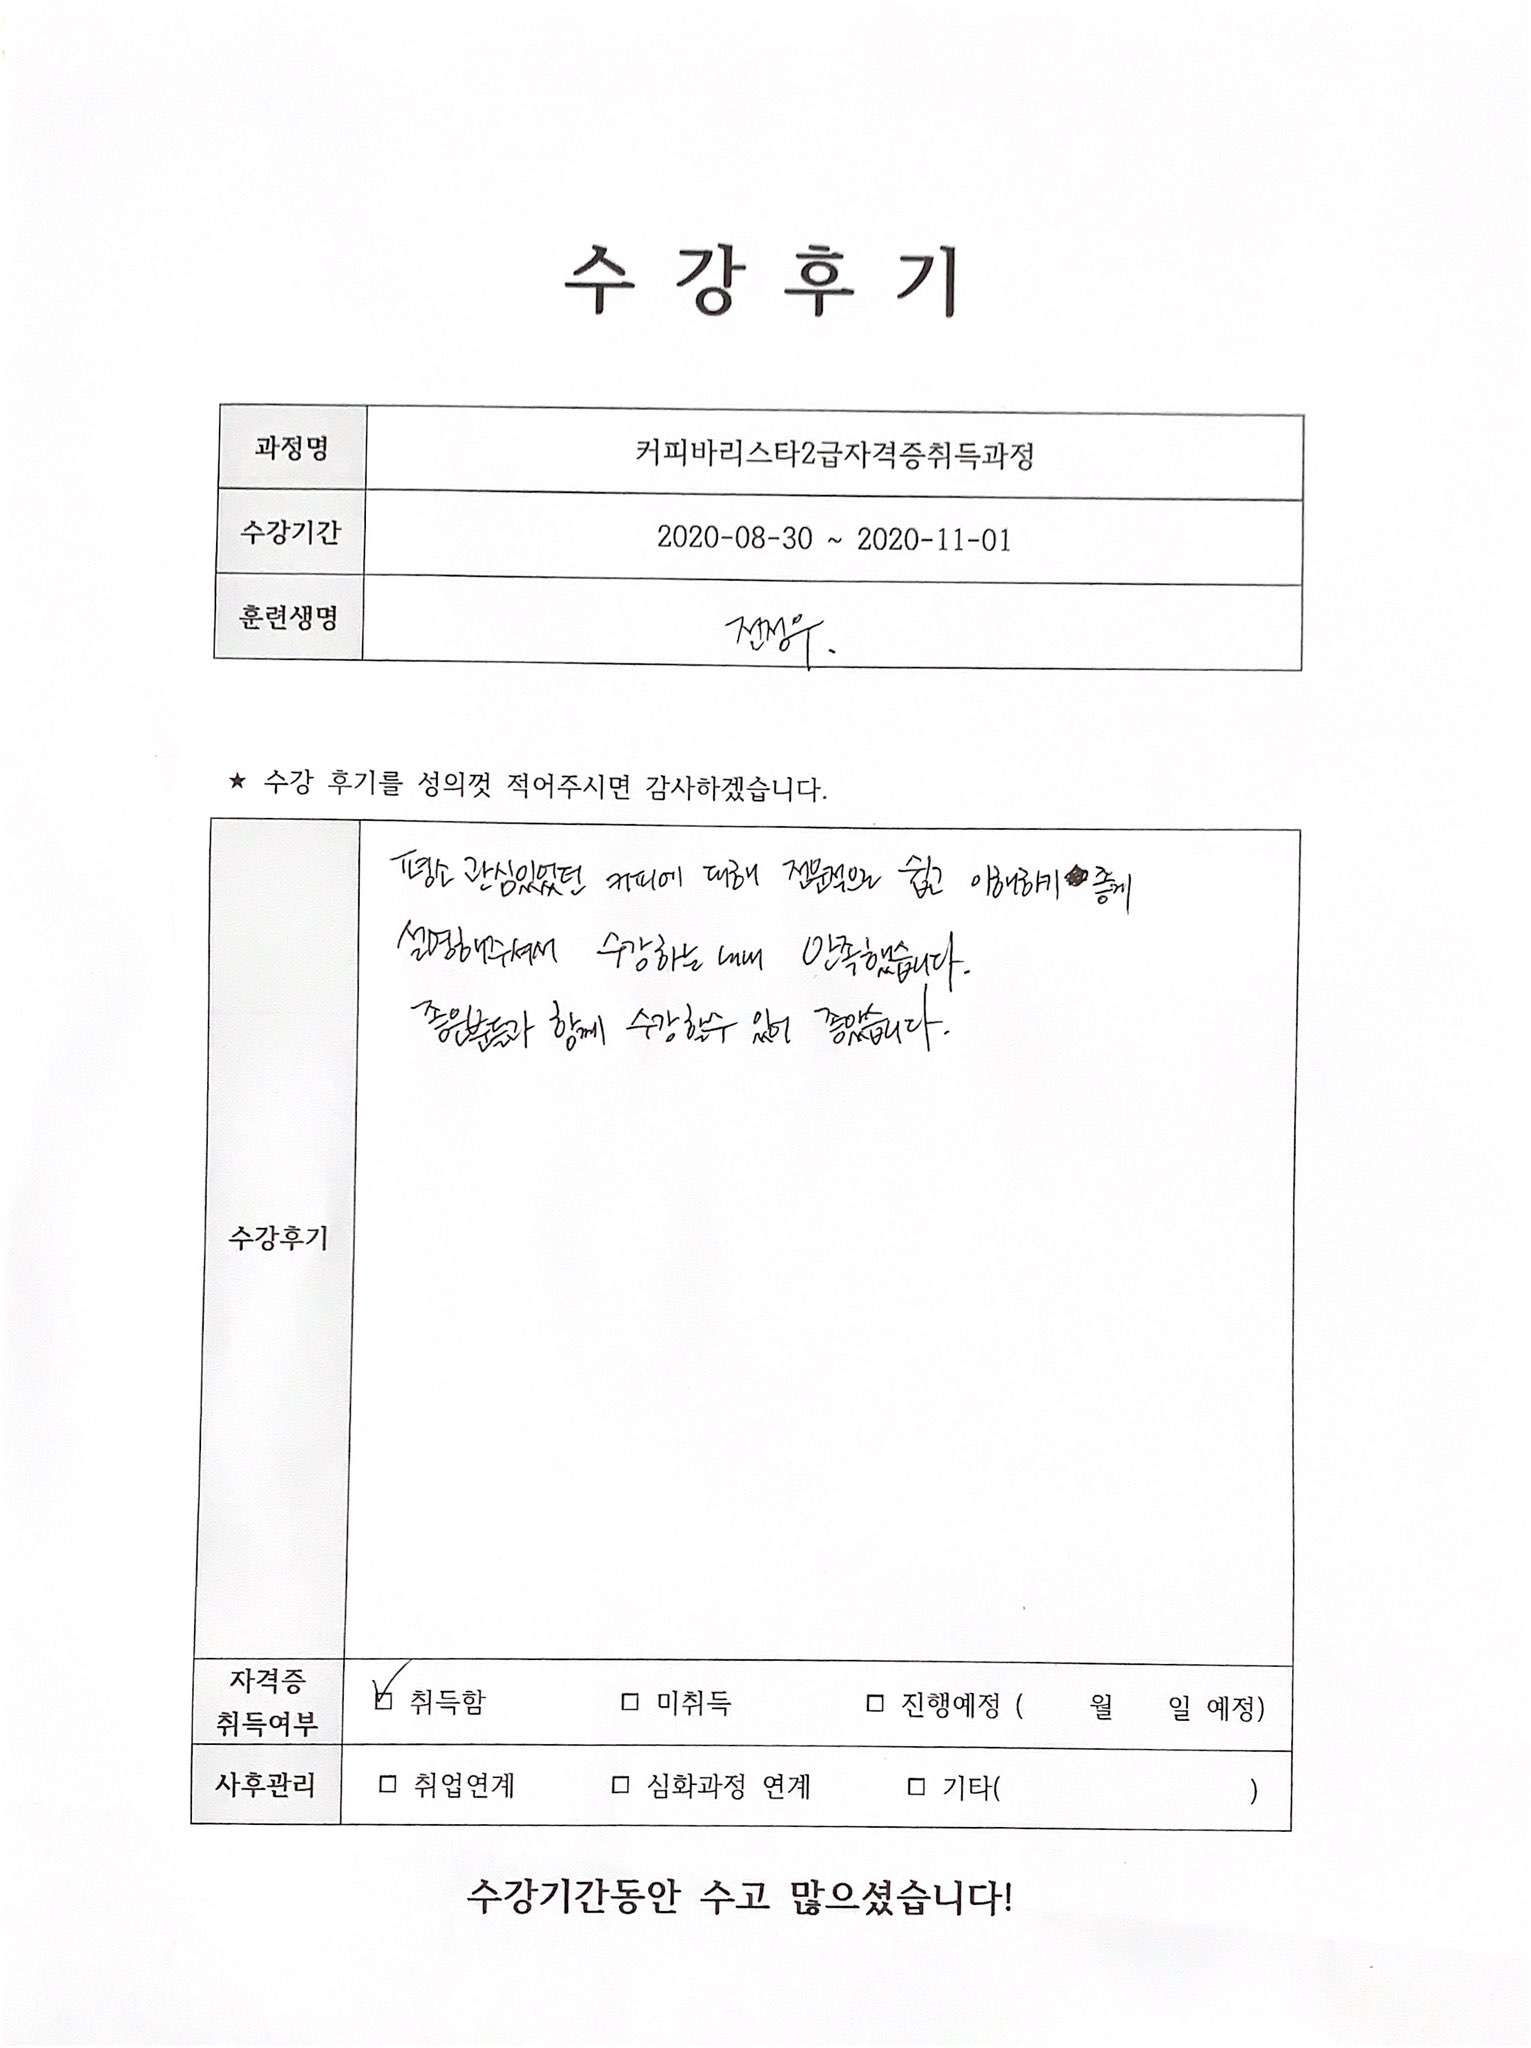 수 강 후 기
과정명 커피바리스타2급자격증취득과정
수강기간 2020-08-30 ~ 2020-11-01
훈련생명 전정우.
★ 수강 후기를 성의껏 적어주시면 감사하겠습니다.
평소 관심있었던 커피에 대해 전문적으로 쉽고 이해하기 좋게
설명해주셔서 수강하는 내내 만족했습니다.
좋은분들과 함께 수강할수 있어 좋았습니다.
수강후기
자격증
취득여부
□ 취득함 □ 미취득 □ 진행예정 ( 월 일 예정)
사후관리 □ 취업연계 □ 심화과정 연계 □ 기타( )
수강기간동안 수고 많으셨습니다!